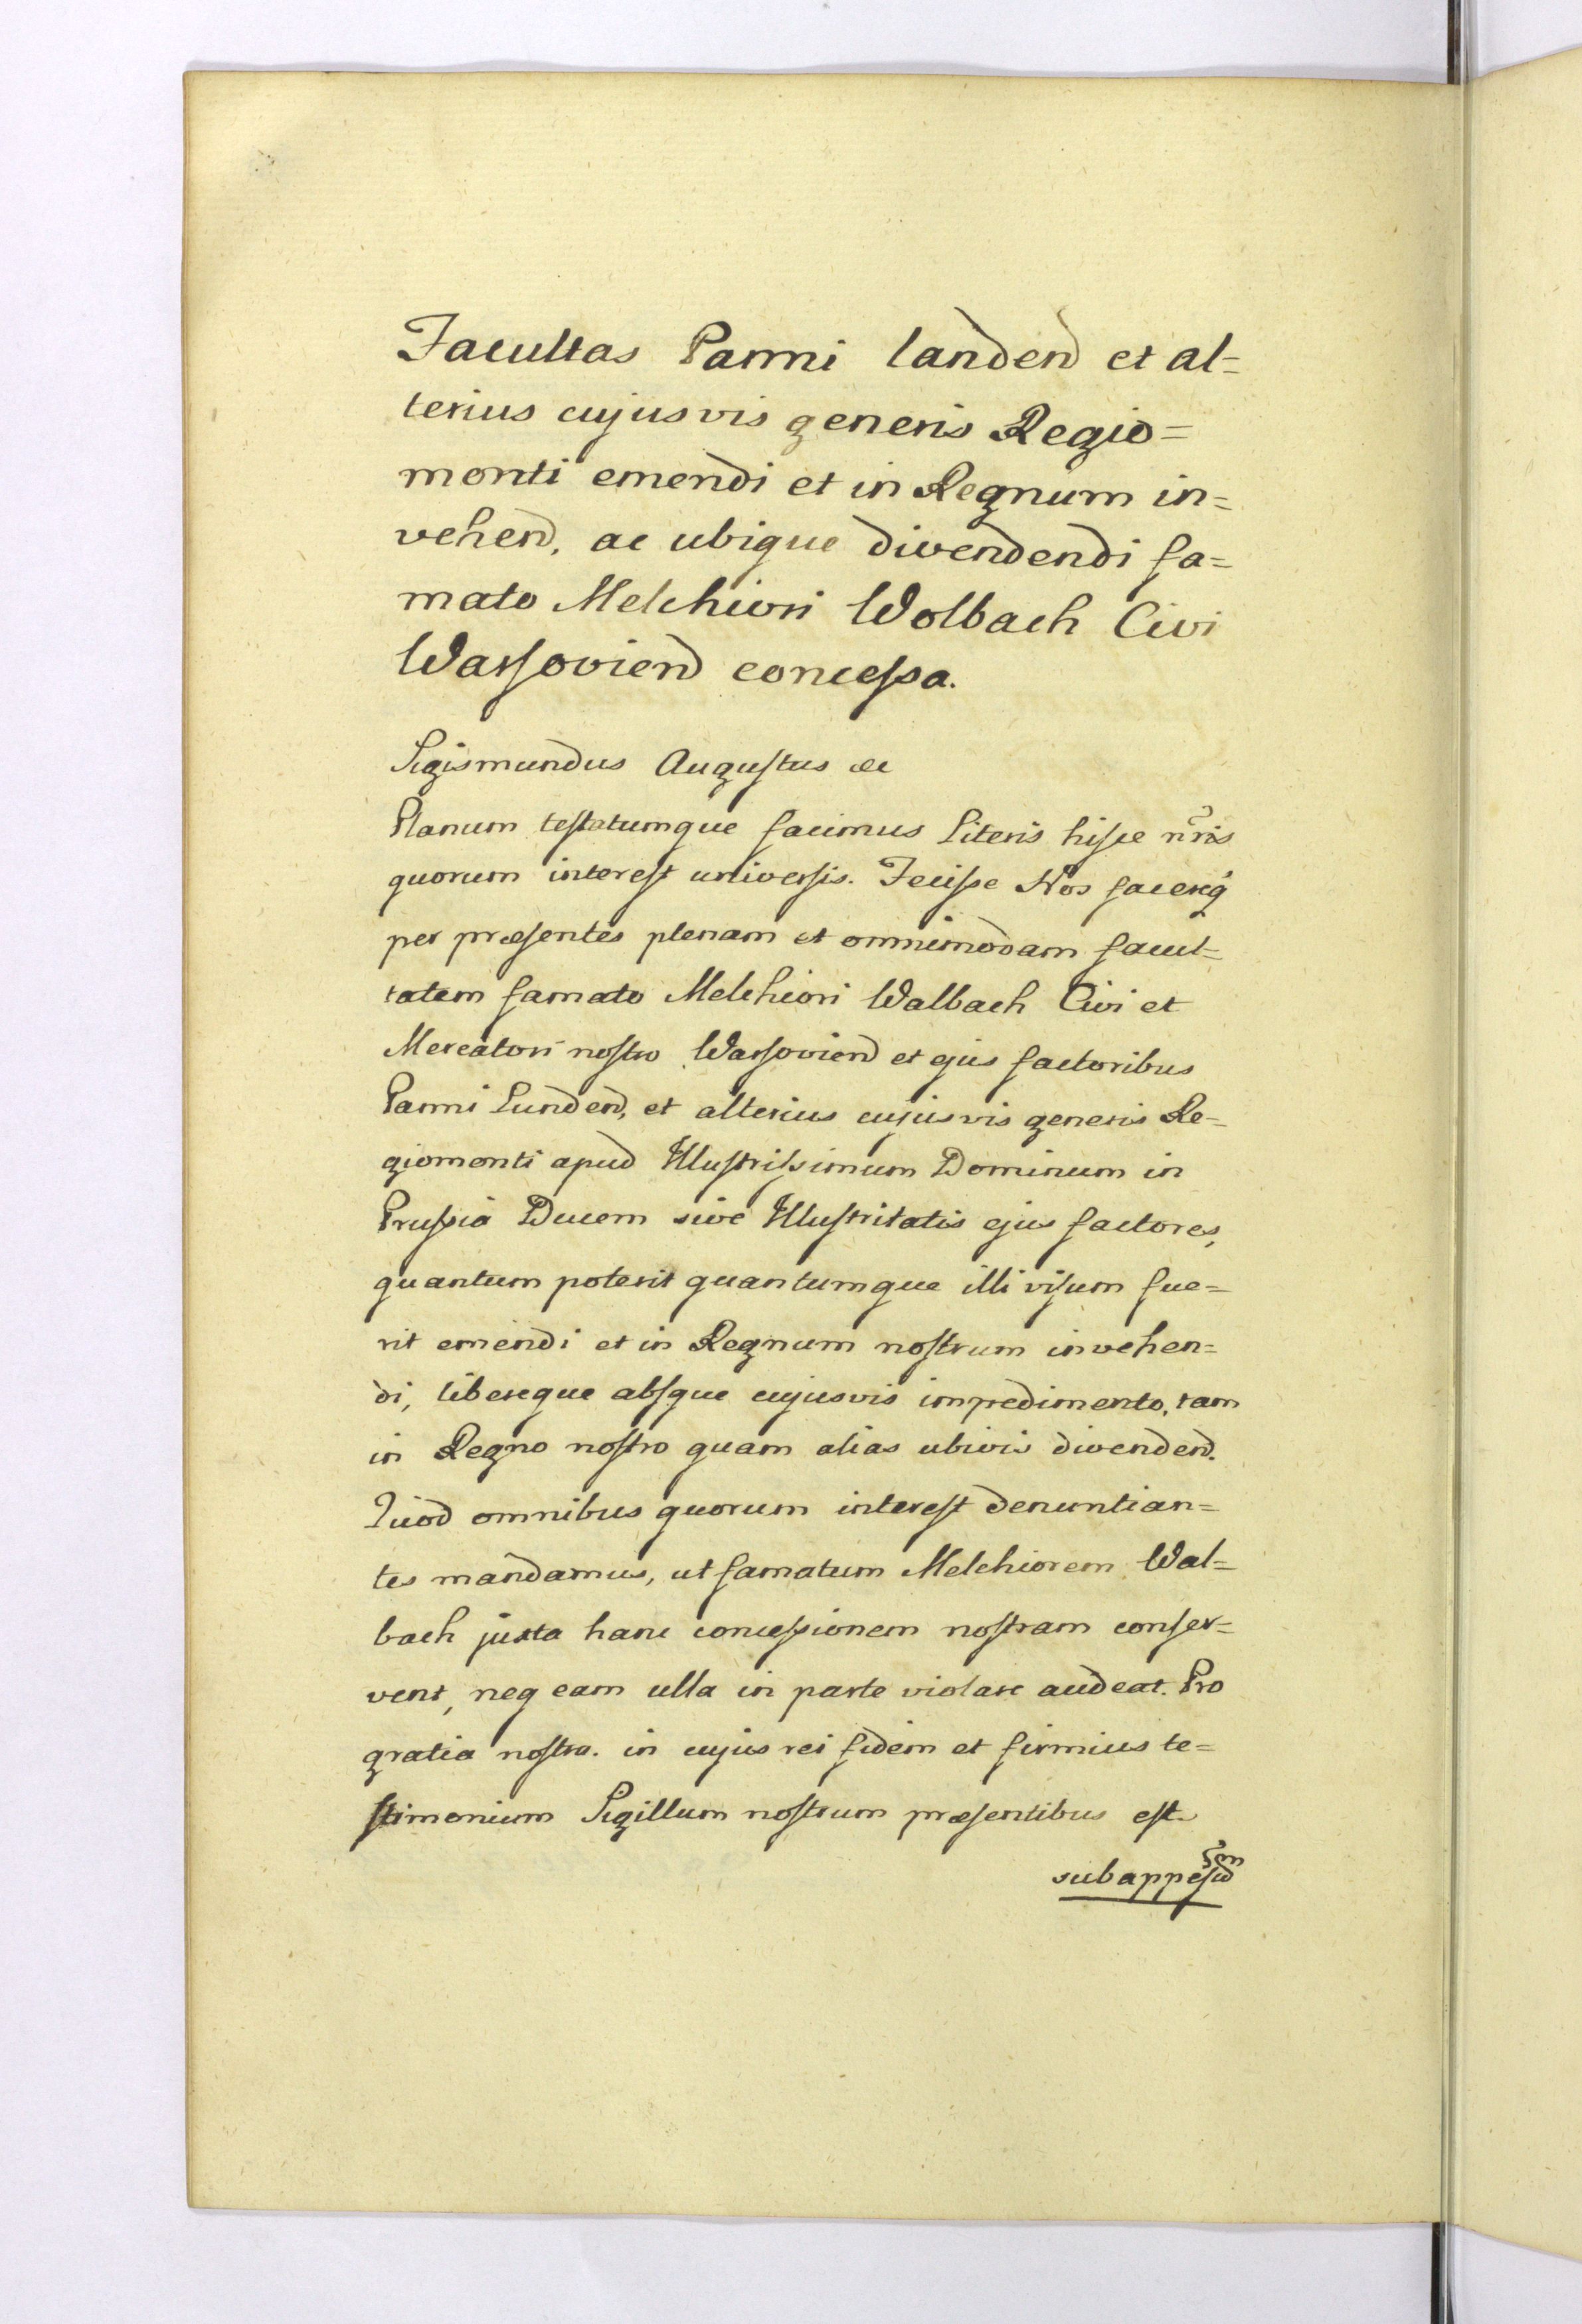 Facultas Panni landen̄ et al=
terius cujusvis generis Regio=
monti emendi et in Regnum in=
vehen̄, ac ubique divendendi fa=
mato Melchiori Wolbach Civi
Warſovien̄ conceſsa.
Sigismundus Auguſtus &c
Planum teſtatumque facimus Literis hiſce nr̄is
quorum intereſt univerſis. Feciſse Nos facereq́
per præſentes plenam et omnimodam facul=
tatem famato Melchiori Walbach Civi et
Mercatori noſtro Warſovien̄ et ejus factoribus
Panni Lunden̄, et alterius cujusvis generis Re=
giomonti apud Illuſtriſsimum Dominum in
Pruſsia Ducem sive Illuſtritatis ejus factores,
quantum poterit quantumque illi viſum fue=
rit emendi et in Regnum noſtrum invehen=
di, libereque abſque cujusvis impedimento, tam
in Regno noſtro quam alias ubivis divenden̄.
Quod omnibus quorum intereſt denuntian=
tes mandamus, ut famatum Melchiorem Wal=
bach juxta hanc conceſsionem noſtram conſer=
vent, neq eam ulla in parte violare audeat. Pro
gratia noſtra. in cujus rei fidem et firmius te=
ſtimonium Sigillum noſtrum præſentibus eſt
subappeſũ